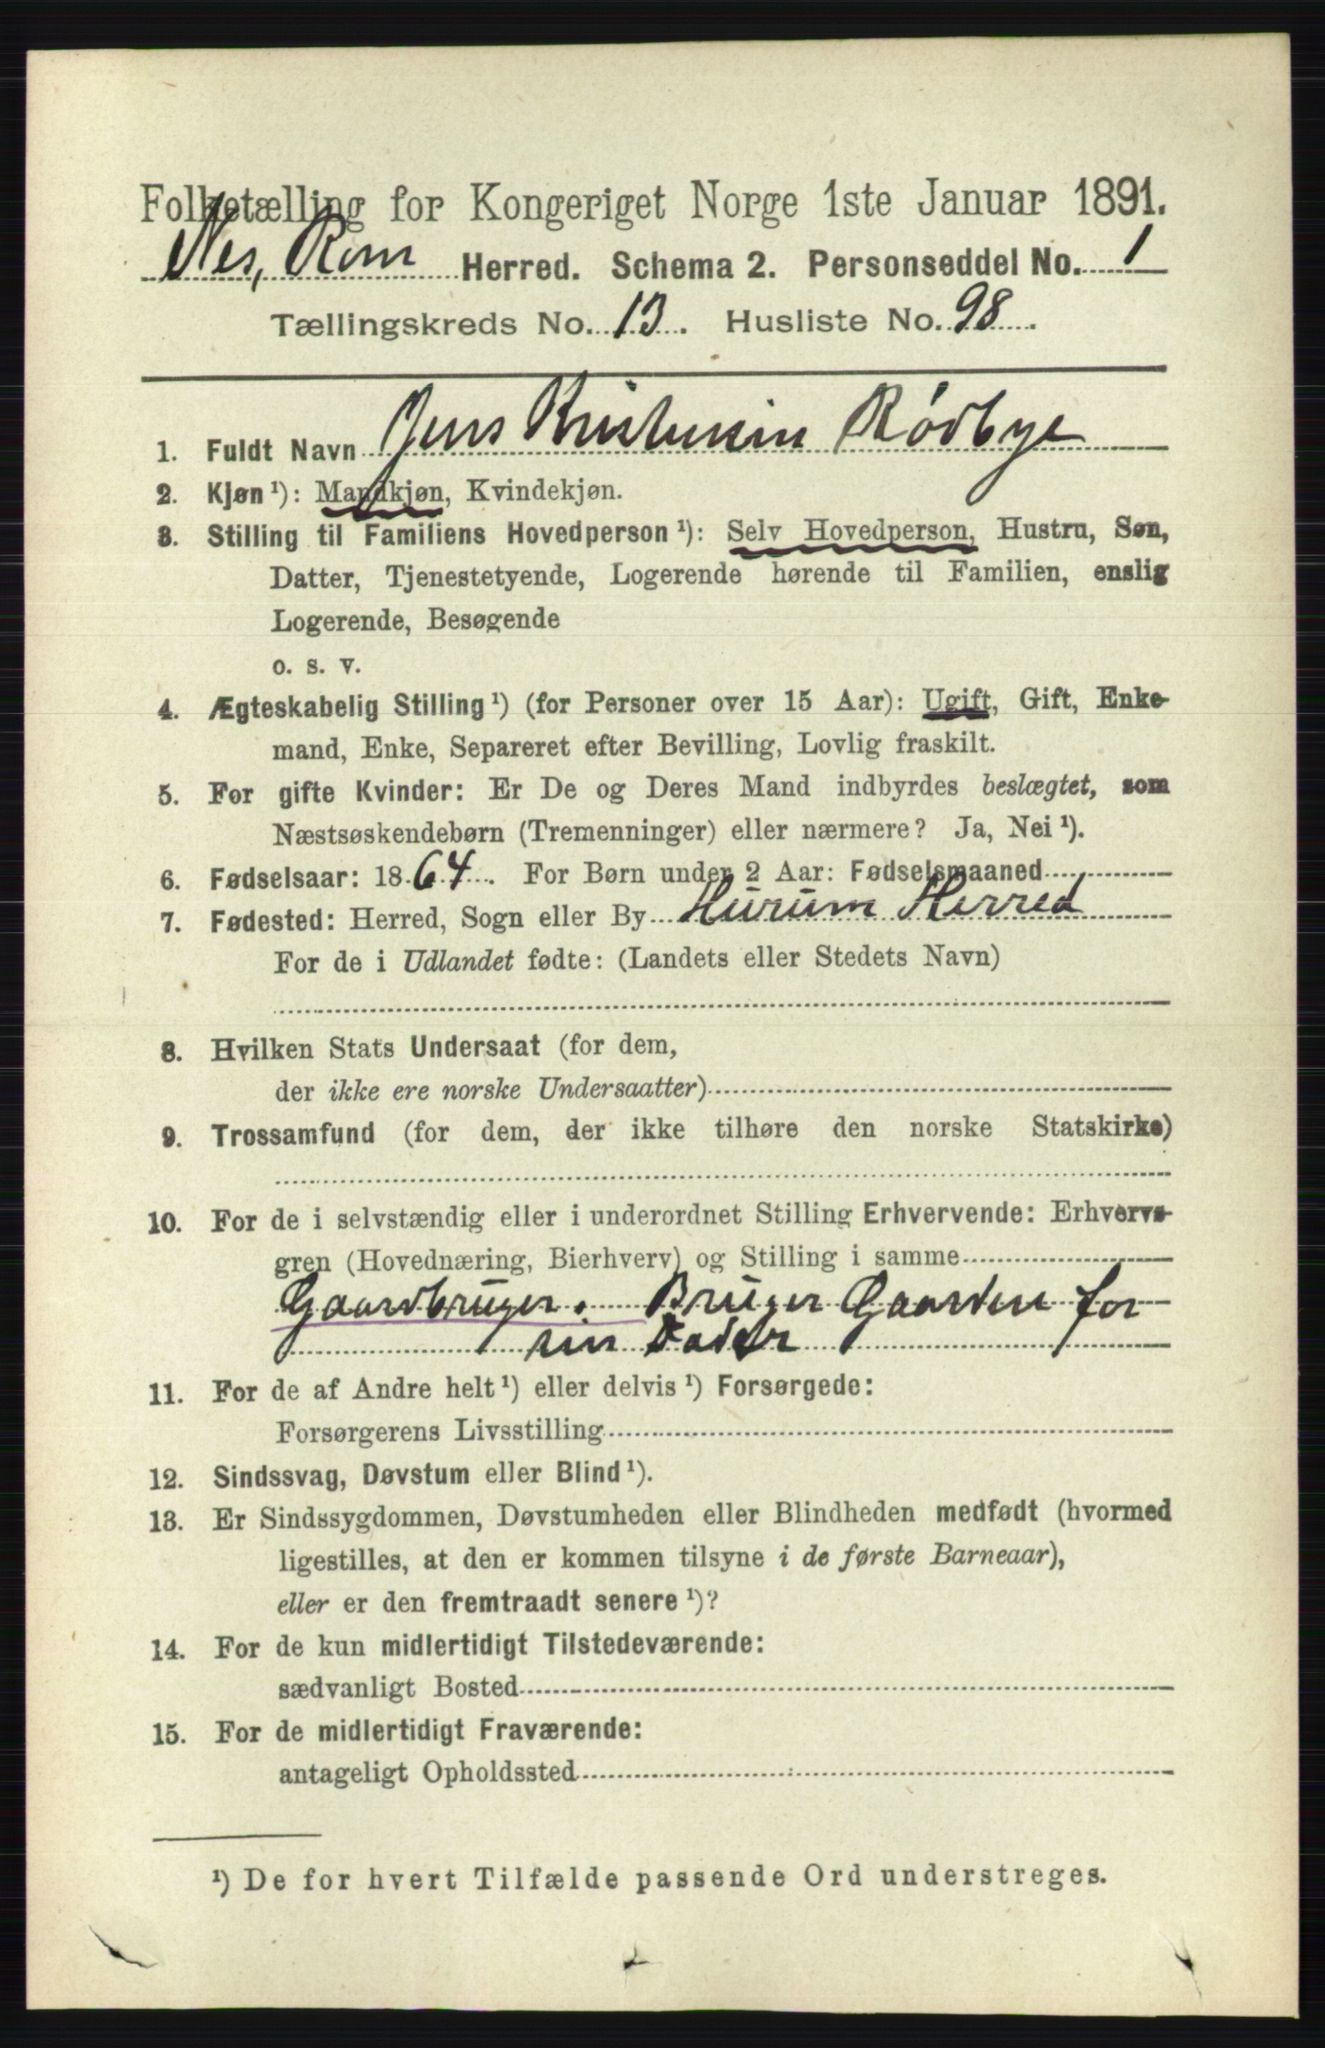 Folketælling for Kongeriget Norge 1ste Januar 1891.
Nes, Rom Herred. Schema 2. Personseddel No. 1
Tællingskreds No. 13. Husliste No. 98.
1. Fuldt Navn Jens Kristensen Rødbye
2. Kjøn ¹): Mandkjøn, Kvindekjøn.
3. Stilling til Familiens Hovedperson ¹): Selv Hovedperson, Hustru, Søn,
Datter, Tjenestetyende, Logerende hørende til Familien, enslig
Logerende, Besøgende
o. s. v.
4. Ægteskabelig Stilling ¹) (for Personer over 15 Aar): Ugift, Gift, Enke-
mand, Enke, Separeret efter Bevilling, Lovlig fraskilt.
5. For gifte Kvinder: Er De og Deres Mand indbyrdes beslægtet, som
Næstsøskendebørn (Tremenninger) eller nærmere? Ja, Nei ¹).
6. Fødselsaar: 1864. For Børn under 2 Aar: Fødselsmaaned
7. Fødested: Herred, Sogn eller By Hurum Herred
For de i Udlandet fødte: (Landets eller Stedets Navn)
8. Hvilken Stats Undersaat (for dem,
der ikke ere norske Undersaatter)
9. Trossamfund (for dem, der ikke tilhøre den norske Statskirke)
10. For de i selvstændig eller i underordnet Stilling Erhvervende: Erhvervs-
gren (Hovednæring, Bierhverv) og Stilling i samme
Gaardbruger. Bruger Gaarden for
sin Fader
11. For de af Andre helt ¹) eller delvis ¹) Forsørgede:
Forsørgerens Livsstilling
12. Sindssvag, Døvstum eller Blind ¹).
13. Er Sindssygdommen, Døvstumheden eller Blindheden medfødt (hvormed
ligestilles, at den er kommen tilsyne i de første Barneaar),
eller er den fremtraadt senere ¹)?
14. For de kun midlertidigt Tilstedeværende:
sædvanligt Bosted
15. For de midlertidigt Fraværende:
antageligt Opholdssted
¹) De for hvert Tilfælde passende Ord understreges.